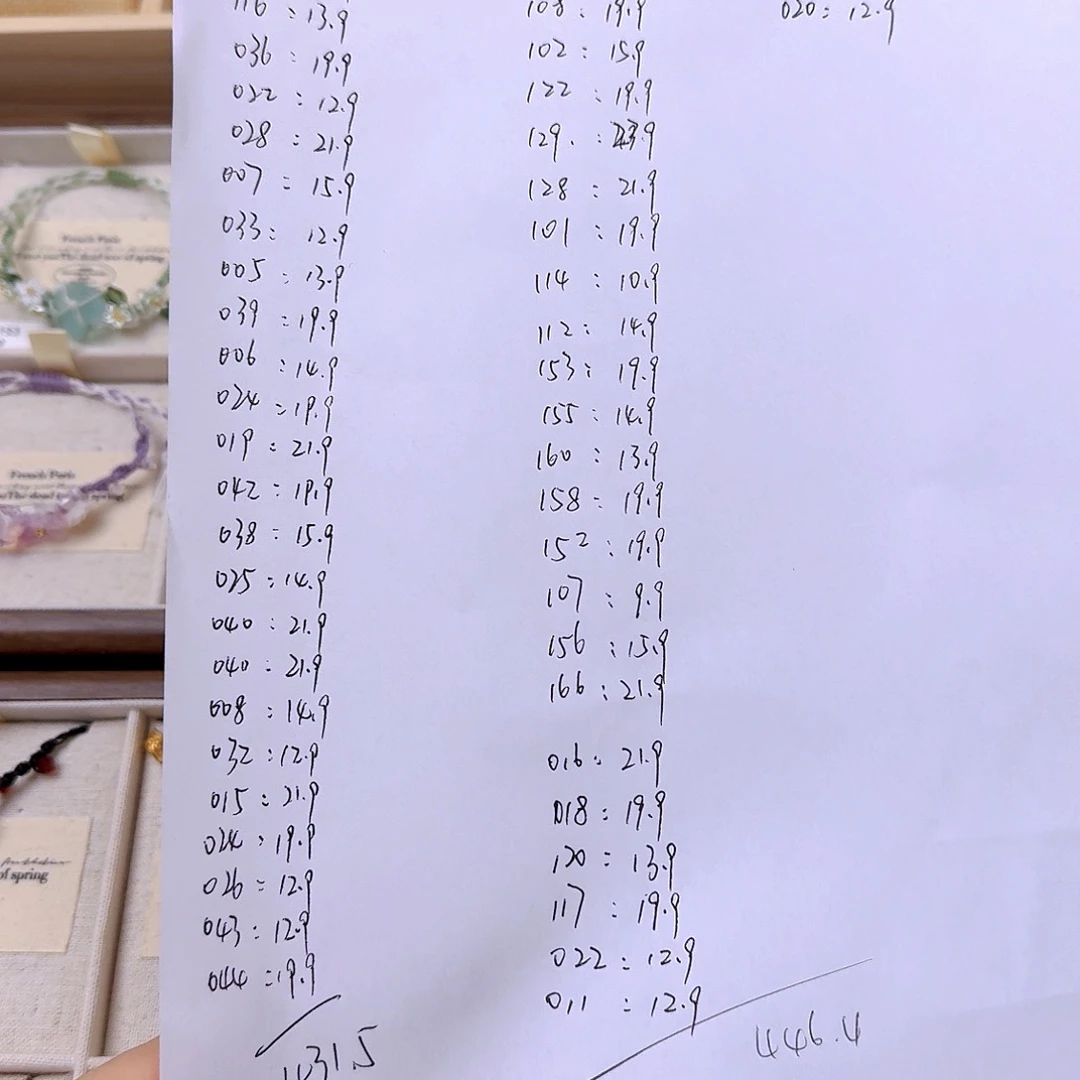 116 : 13.9
036 : 19.9
022 : 12.9
028 : 21.9
007 : 15.9
033 : 12.9
005 : 13.9
039 : 19.9
006 : 14.9
024 : 19.9
019 : 21.9
042 : 19.9
038 : 15.9
025 : 14.9
040 : 21.9
040 : 21.9
008 : 14.9
032 : 12.9
015 : 21.9
024 : 19.9
026 : 12.9
043 : 12.9
044 : 19.9
1031.5
108 : 19.9
102 : 15.9
122 : 19.9
129. : 23.9
128 : 21.9
101 : 19.9
114 : 10.9
112 : 14.9
153 : 19.9
155 : 14.9
160 : 13.9
158 : 19.9
152 : 19.9
107 : 9.9
156 : 15.9
166 : 21.9
016 : 21.9
018 : 19.9
120 : 13.9
117 : 19.9
022 : 12.9
011 : 12.9
446.4
020 : 12.9
French Paris
The dead tree of spring
French Paris
The dead
spring
of spring